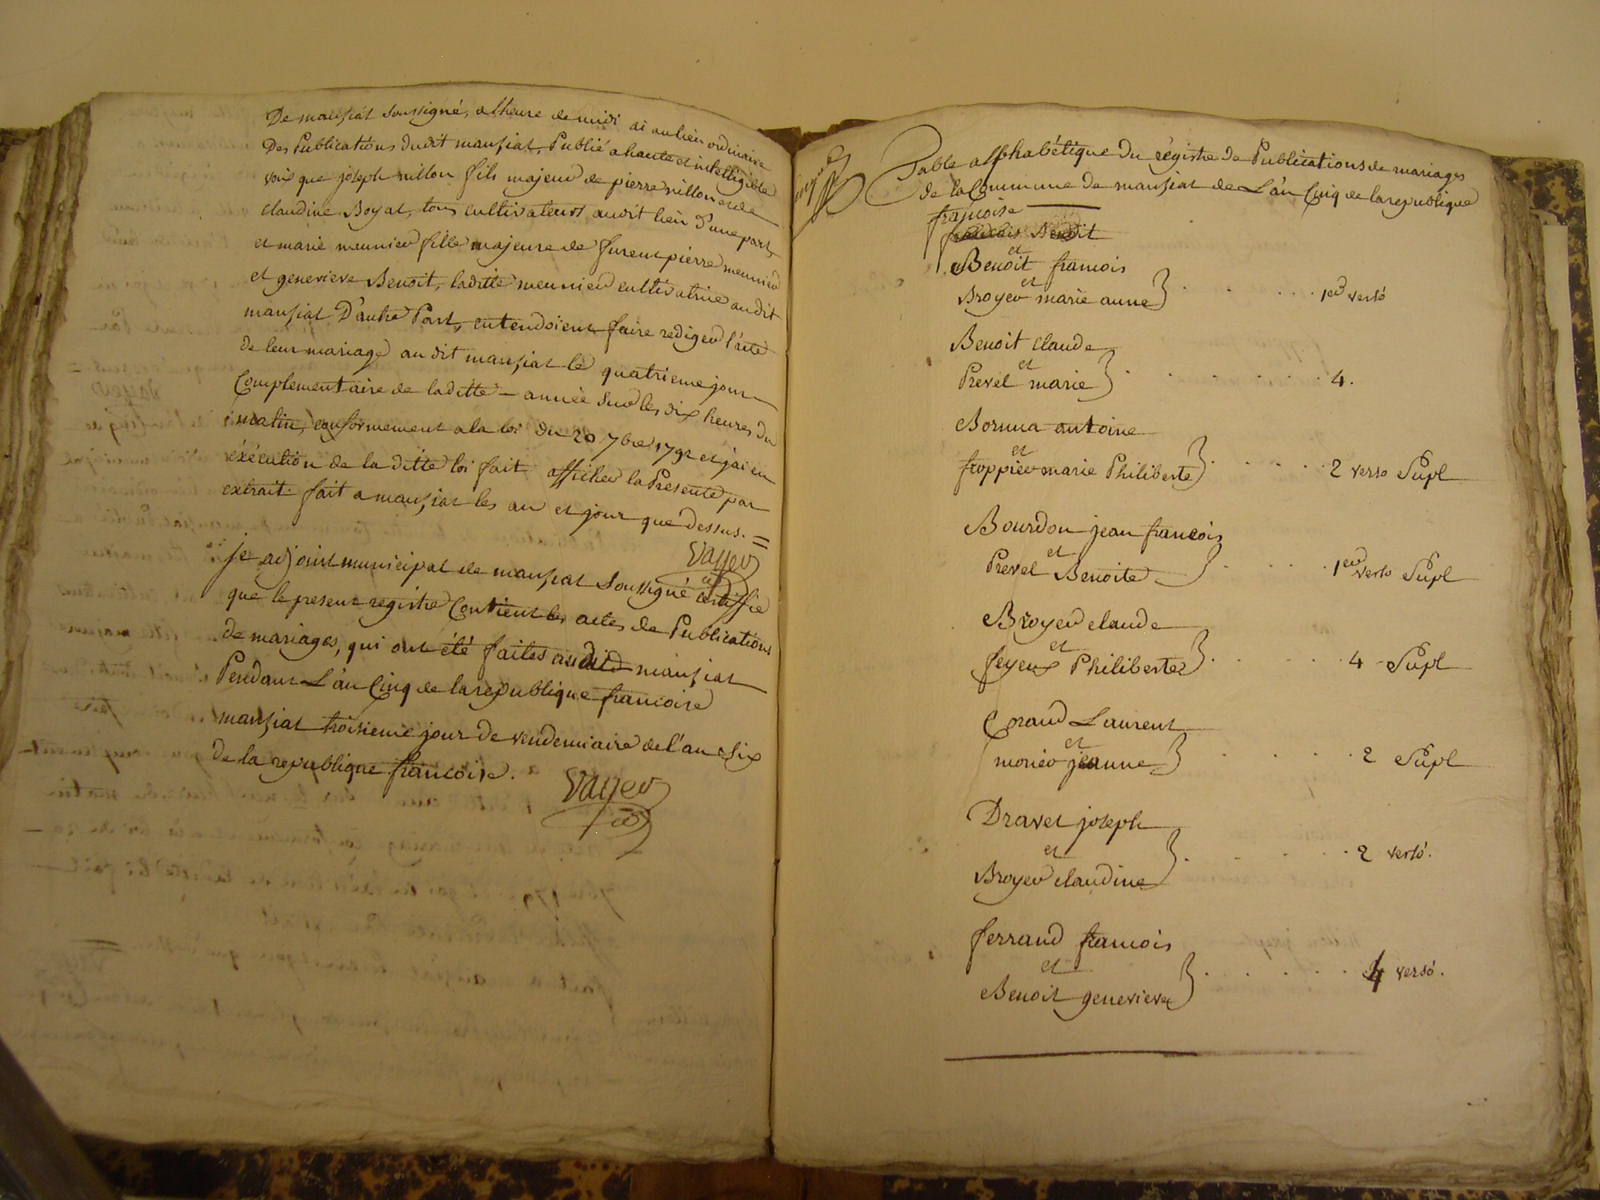 De mansiat soussigné, a l'heure de midi ai au lieu ordinaire
Des Publications dudit mansiat, Publié a haute et intelligible
voix que joseph nillon fils majeur de pierre nillon et de
claudine Boyat, tous cultivateurs audit lieu D'une part,
et marie meunier fille majeure de furent pierre meunier
et genevieve Benoit, laditte meunier cultivatrice audit
mansiat D'autre Part, entendoient faire rediger l'acte
de leur mariage au dit mansiat le quatrieme jour
Complementaire de laditte année Sur les dix heures du
matin, conformement a la loi du 20 7bre 1792 et j'ai en
éxécution de la ditte loi fait afficher la Presente par
extrait. fait a mansiat les an et jour que dessus. =
Vayer
je adjoint municipal de mansiat Soussigné certiffie
que le present registre Contient les actes de Publications
de mariages, qui ont été faites audit mansiat
Pendant L'an Cinq de la republique francoise
mansiat troisieme jour de vendemiaire de l'an Six
de la republique francoise.
Vayer
Table alphabétique du régistre de Publications de mariages
de la Commune de mansiat de L'an Cinq de la republique
francoise
Benoit
Benoit francois
et
Broyer marie anne } 1er verso
Benoit claude
et
Prevel marie } 4.
Bornua antoine
et
froppier marie Philiberte } 2 verso Supl
Bourdon jean francois
et
Prevel Benoite } 1er verso Supl
Broyer claude
et
feyeux Philiberte } 4 Supl
Corand Laurent
et
monier jeanne } 2 Supl
Dravet joseph
et
Broyer claudine } 2 verso.
ferrand francois
et
Benoit genevieve } 4 verso.